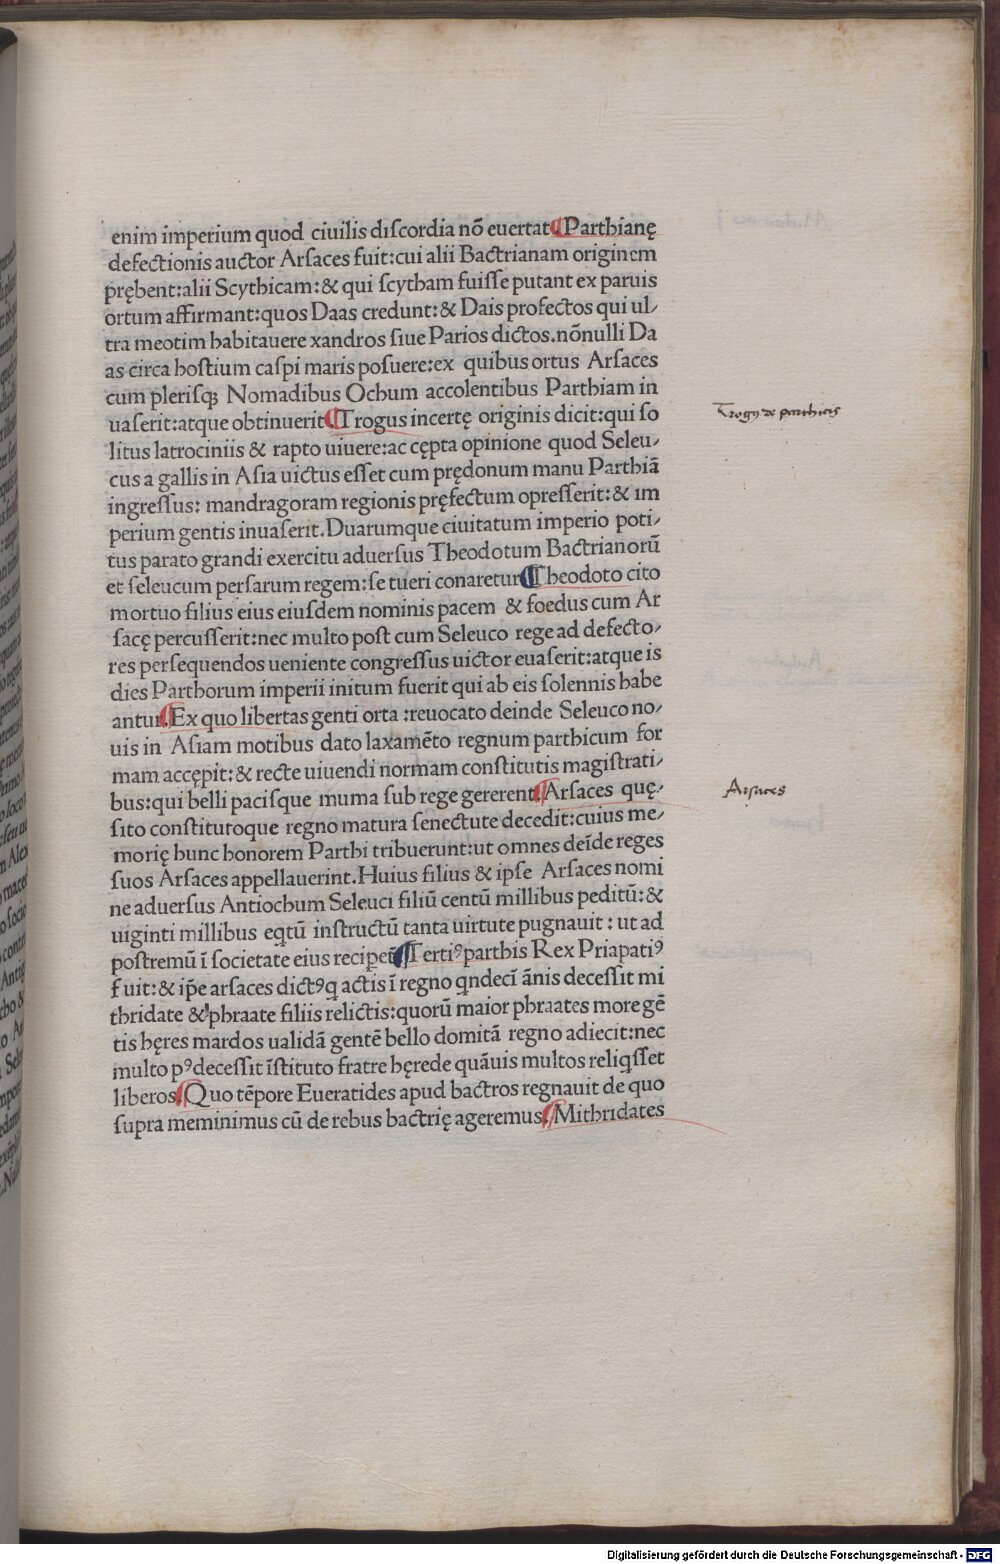 enim imperium quod ciuilis discordia nõ euertat¶Parthianę
defectionis auctor Arſaces fuit:cui alii Bactrianam originem
pręhent:alii Scythicam:& qui ſcytham fuiſſe putant ex paruis
ortum affirmant:quos Daas credunt:& Dais profectos qui ul⸗
tra meotim habitauere xandros ſiue Parios dictos.nõnulli Da
as circa hoſtium caſpi maris poſuere:ex quibus ortus Arſaces
cum pleriſqꝫ Nomadibus Ochum accolentibus Parthiam in
uaſerit:atque obtinuerit¶Trogus incertę originis dicit:qui ſo
litus latrociniis & rapto uiuere:ac cępta opinione quod Seleu⸗
cus a gallis in Aſia uictus eſſet cum prędonum manu Parthiã
ingreſſus: mandragoram regionis pręfectum opreſſerit:& im
perium gentis inuaſerit.Duarumque ciuitatum imperio poti⸗
tus parato grandi exercitu aduerſus Theodotum Bactrianorũ
et ſeleucum perſarum regem:ſe tueri conaretur¶Theodoto cito
mortuo filius eius eiuſdem nominis pacem & foedus cum Ar
ſacę percuſſerit:nec multo poſt cum Seleuco rege ad defecto⸗
res perſequendos ueniente congreſſus uictor euaſerit:atque is
dies Parthorum imperii initum fuerit qui ab eis ſolennis habe
antur.¶Ex quo libertas genti orta :reuocato deinde Seleuco no⸗
uis in Aſiam motibus dato laxamẽto regnum parthicum for
mam accępit:& recte uiuendi normam conſtitutis magiſtrati⸗
bus:qui belli paciſque muma ſub rege gererent¶Arſaces quę⸗
ſito conſtitutoque regno matura ſenectute decedit:cuius me⸗
morię hunc honorem Parthi tribuerunt:ut omnes deĩde reges
ſuos Arſaces appellauerint.Huius filius & ipſe Arſaces nomi
ne aduerſus Antiochum Seleuci filiũ centũ millibus peditũ:&
uiginti millibus eqtũ inſtructũ tanta uirtute pugnauit : ut ad
poſtremũ ĩ ſocietate eius recipet̃¶Tertiꝰ parthis Rex Priapatiꝰ
fuit:& ip̃e arſaces dictꝰ q actis ĩ regno qndecĩ ãnis deceſſit mi
thridate & phraate filiis relictis:quorũ maior phraates more gẽ
tis hęres mardos ualidã gentẽ bello domitã regno adiecit:nec
multo pꝰ deceſſit ĩſtituto fratre hęrede quãuis multos reliqſſet
liberos¶Quo tẽpore Eueratides apud bactros regnauit de quo
ſupra meminimus cũ de rebus bactrię ageremus¶Mithridates
Trogꝰ de parthicis
Arsaces
Digitalisierung gefördert durch die Deutsche Forschungsgemeinschaft - DFG